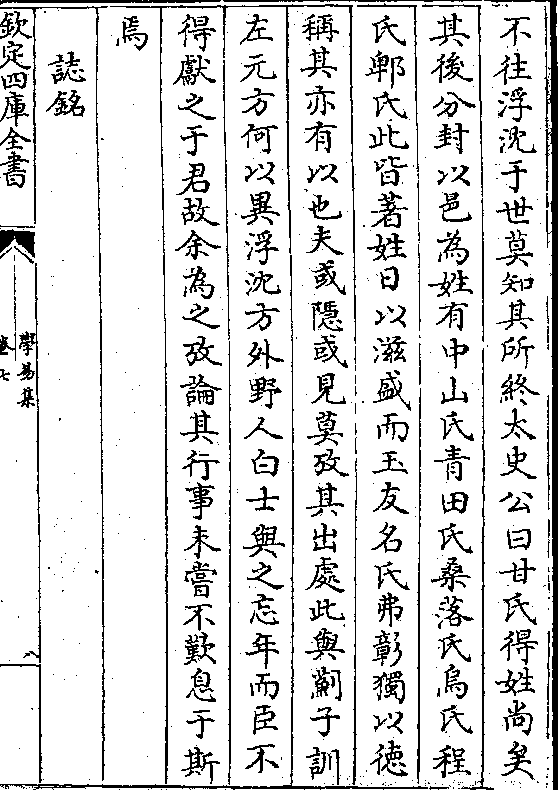 不往浮沈于世莫知其所終太史公曰甘氏得姓尚矣
其後分封以邑為姓有中山氏青田氏桑落氏烏氏程
氏郫氏此皆著姓日以滋盛而玉友名氏弗彰獨以徳
稱其亦有以也夫或隱或見莫攷其出處此與薊子訓
左元方何以異浮沈方外野人白士與之忘年而臣不
得獻之于君故余為之攷論其行事未嘗不歎息于斯
焉
誌銘
欽定四庫全書
學易集
卷七
八